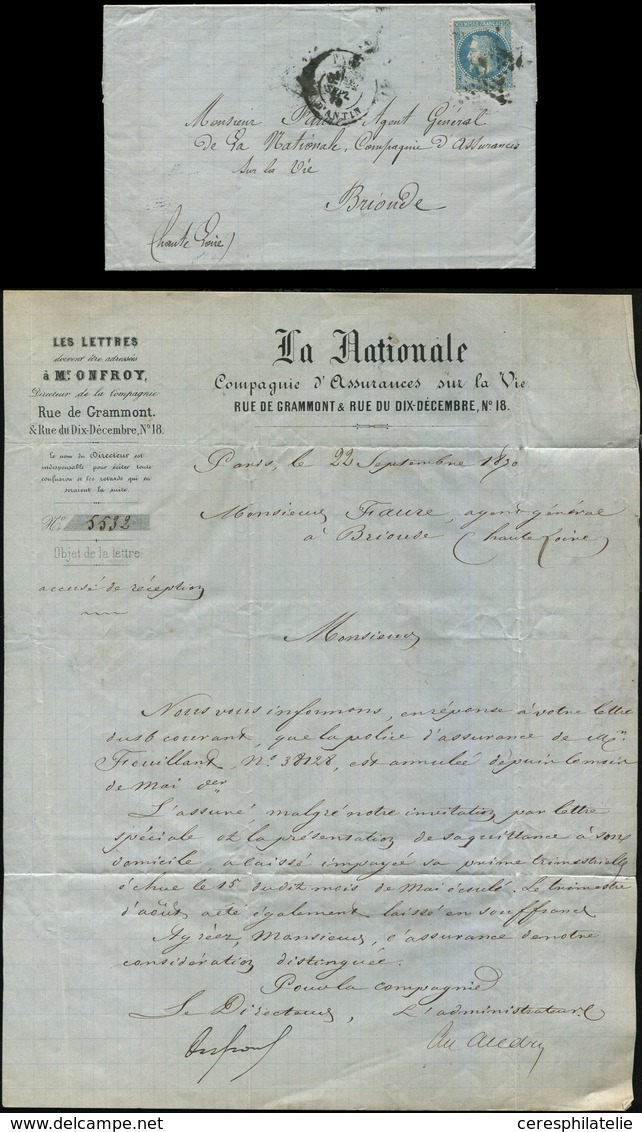 Monsieur Faure, Agent Général
de La Nationale, Compagnie d'Assurances
sur la Vie
Brioude
(haute Loire)
D'ANTIN
LES LETTRES
doivent être adressées
à Mr. ONFROY,
Directeur de la Compagnie
Rue de Grammont.
& Rue du Dix-Décembre, No 18.
Le nom du Directeur est
indispensable pour éviter toute
confusion et les retards qui en
seraient la suite.
No 5532
Objet de la lettre
accusé de réception
La Nationale
Compagnie d'Assurances sur la Vie
RUE DE GRAMMONT & RUE DU DIX-DÉCEMBRE, No 18.
Paris, le 22 Septembre 1870
Monsieur Faure, agent général
à Brioude (haute Loire)
Monsieur
Nous vous informons, en réponse à votre lettre
du 6 courant, que la police d'assurance de Mr
Feuillant, No 38128, est annulée depuis le mois
de Mai der
L'assuré malgré notre invitation par lettre
spéciale et la présentation de sa quittance à son
domicile, a laissé impayée sa prime trimestrielle
échue le 15 dudit mois de Mai écoulé. Le trimestre
d'août a été également laissé en souffrance
Agréez, Monsieur, l'assurance de notre
considération distinguée.
Pour la compagnie
Le Directeur, L'administrateur
www.delcampe.net
ceresphilatelie.com